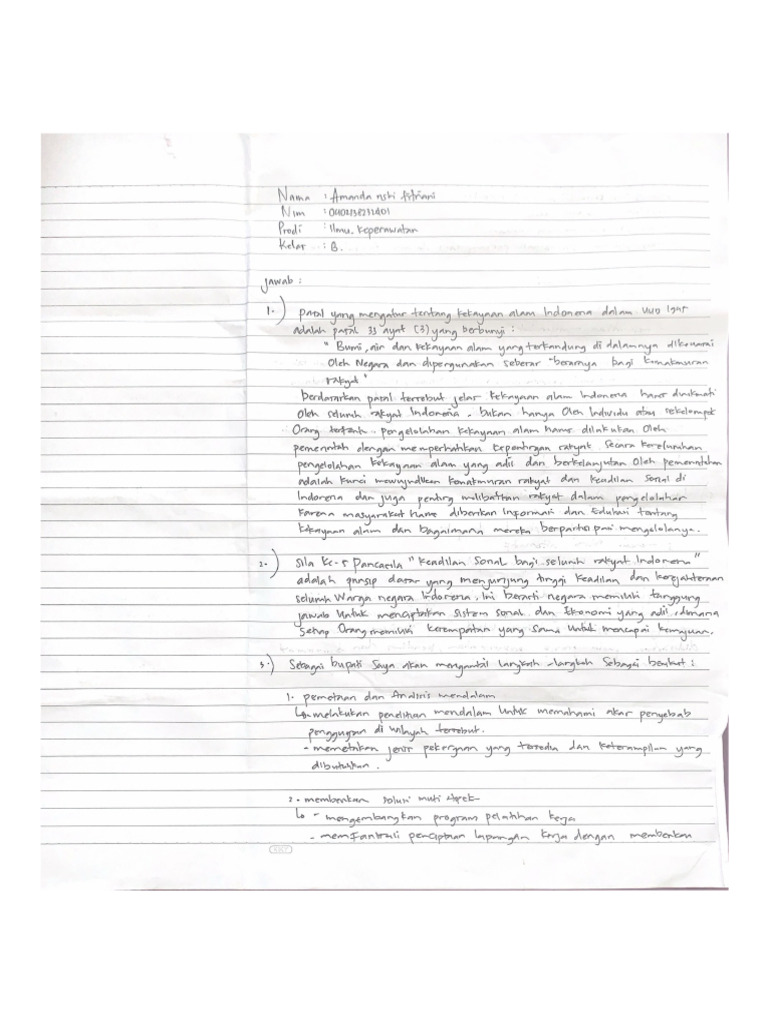 Nama : Amanda
Nim :
Prodi : Ilmu Keperawatan
Kelas : B.
Jawab :
1.) Pasal yang mengatur tentang kekayaan alam Indonesia dalam UUD 1945
adalah pasal 33 ayat (3) yang berbunyi :
" Bumi, air dan kekayaan alam yang terkandung di dalamnya dikuasai
Oleh Negara dan dipergunakan sebesar - besarnya bagi kemakmuran
rakyat "
Berdasarkan pasal tersebut jelas kekayaan alam Indonesia harus dinikmati
Oleh seluruh rakyat Indonesia, bukan hanya Oleh Individu atau sekelompok
Orang tertentu. pengelolahan kekayaan alam harus dilakukan Oleh
pemerintah dengan memperhatikan kepentingan rakyat secara keseluruhan
pengelolahan kekayaan alam yang adil dan berkelanjutan Oleh pemerintah
adalah kunci mewujudkan kemakmuran rakyat dan keadilan sosial di
Indonesia dan juga penting melibatkan rakyat dalam pengelolahan
karena masyarakat harus diberikan Informasi dan Edukasi tentang
kekayaan alam dan bagaimana mereka berpartisipasi mengelolanya.
2.) Sila Ke-5 Pancasila " Keadilan Sosial bagi seluruh rakyat Indonesia "
adalah prinsip dasar yang menjunjung tinggi keadilan dan kesejahteraan
seluruh Warga negara Indonesia. Ini berarti negara memiliki tanggung
jawab Untuk menciptakan sistem sosial dan Ekonomi yang adil, dimana
Setiap Orang memiliki kesempatan yang sama Untuk mencapai kemajuan.
3.) Sebagai bupati Saya akan mengambil langkah - langkah Sebagai berikut :
1. pemetaan dan Analisis mendalam
melakukan penelitian mendalam Untuk memahami akar penyebab
di wilayah tersebut.
- memetakan jenis pekerjaan yang tersedia dan keterampilan yang
dibutuhkan.
2. memberikan solusi muti Aspek
- mengembangkan program pelatihan kerja
- penciptaan lapangan kerja dengan memberikan